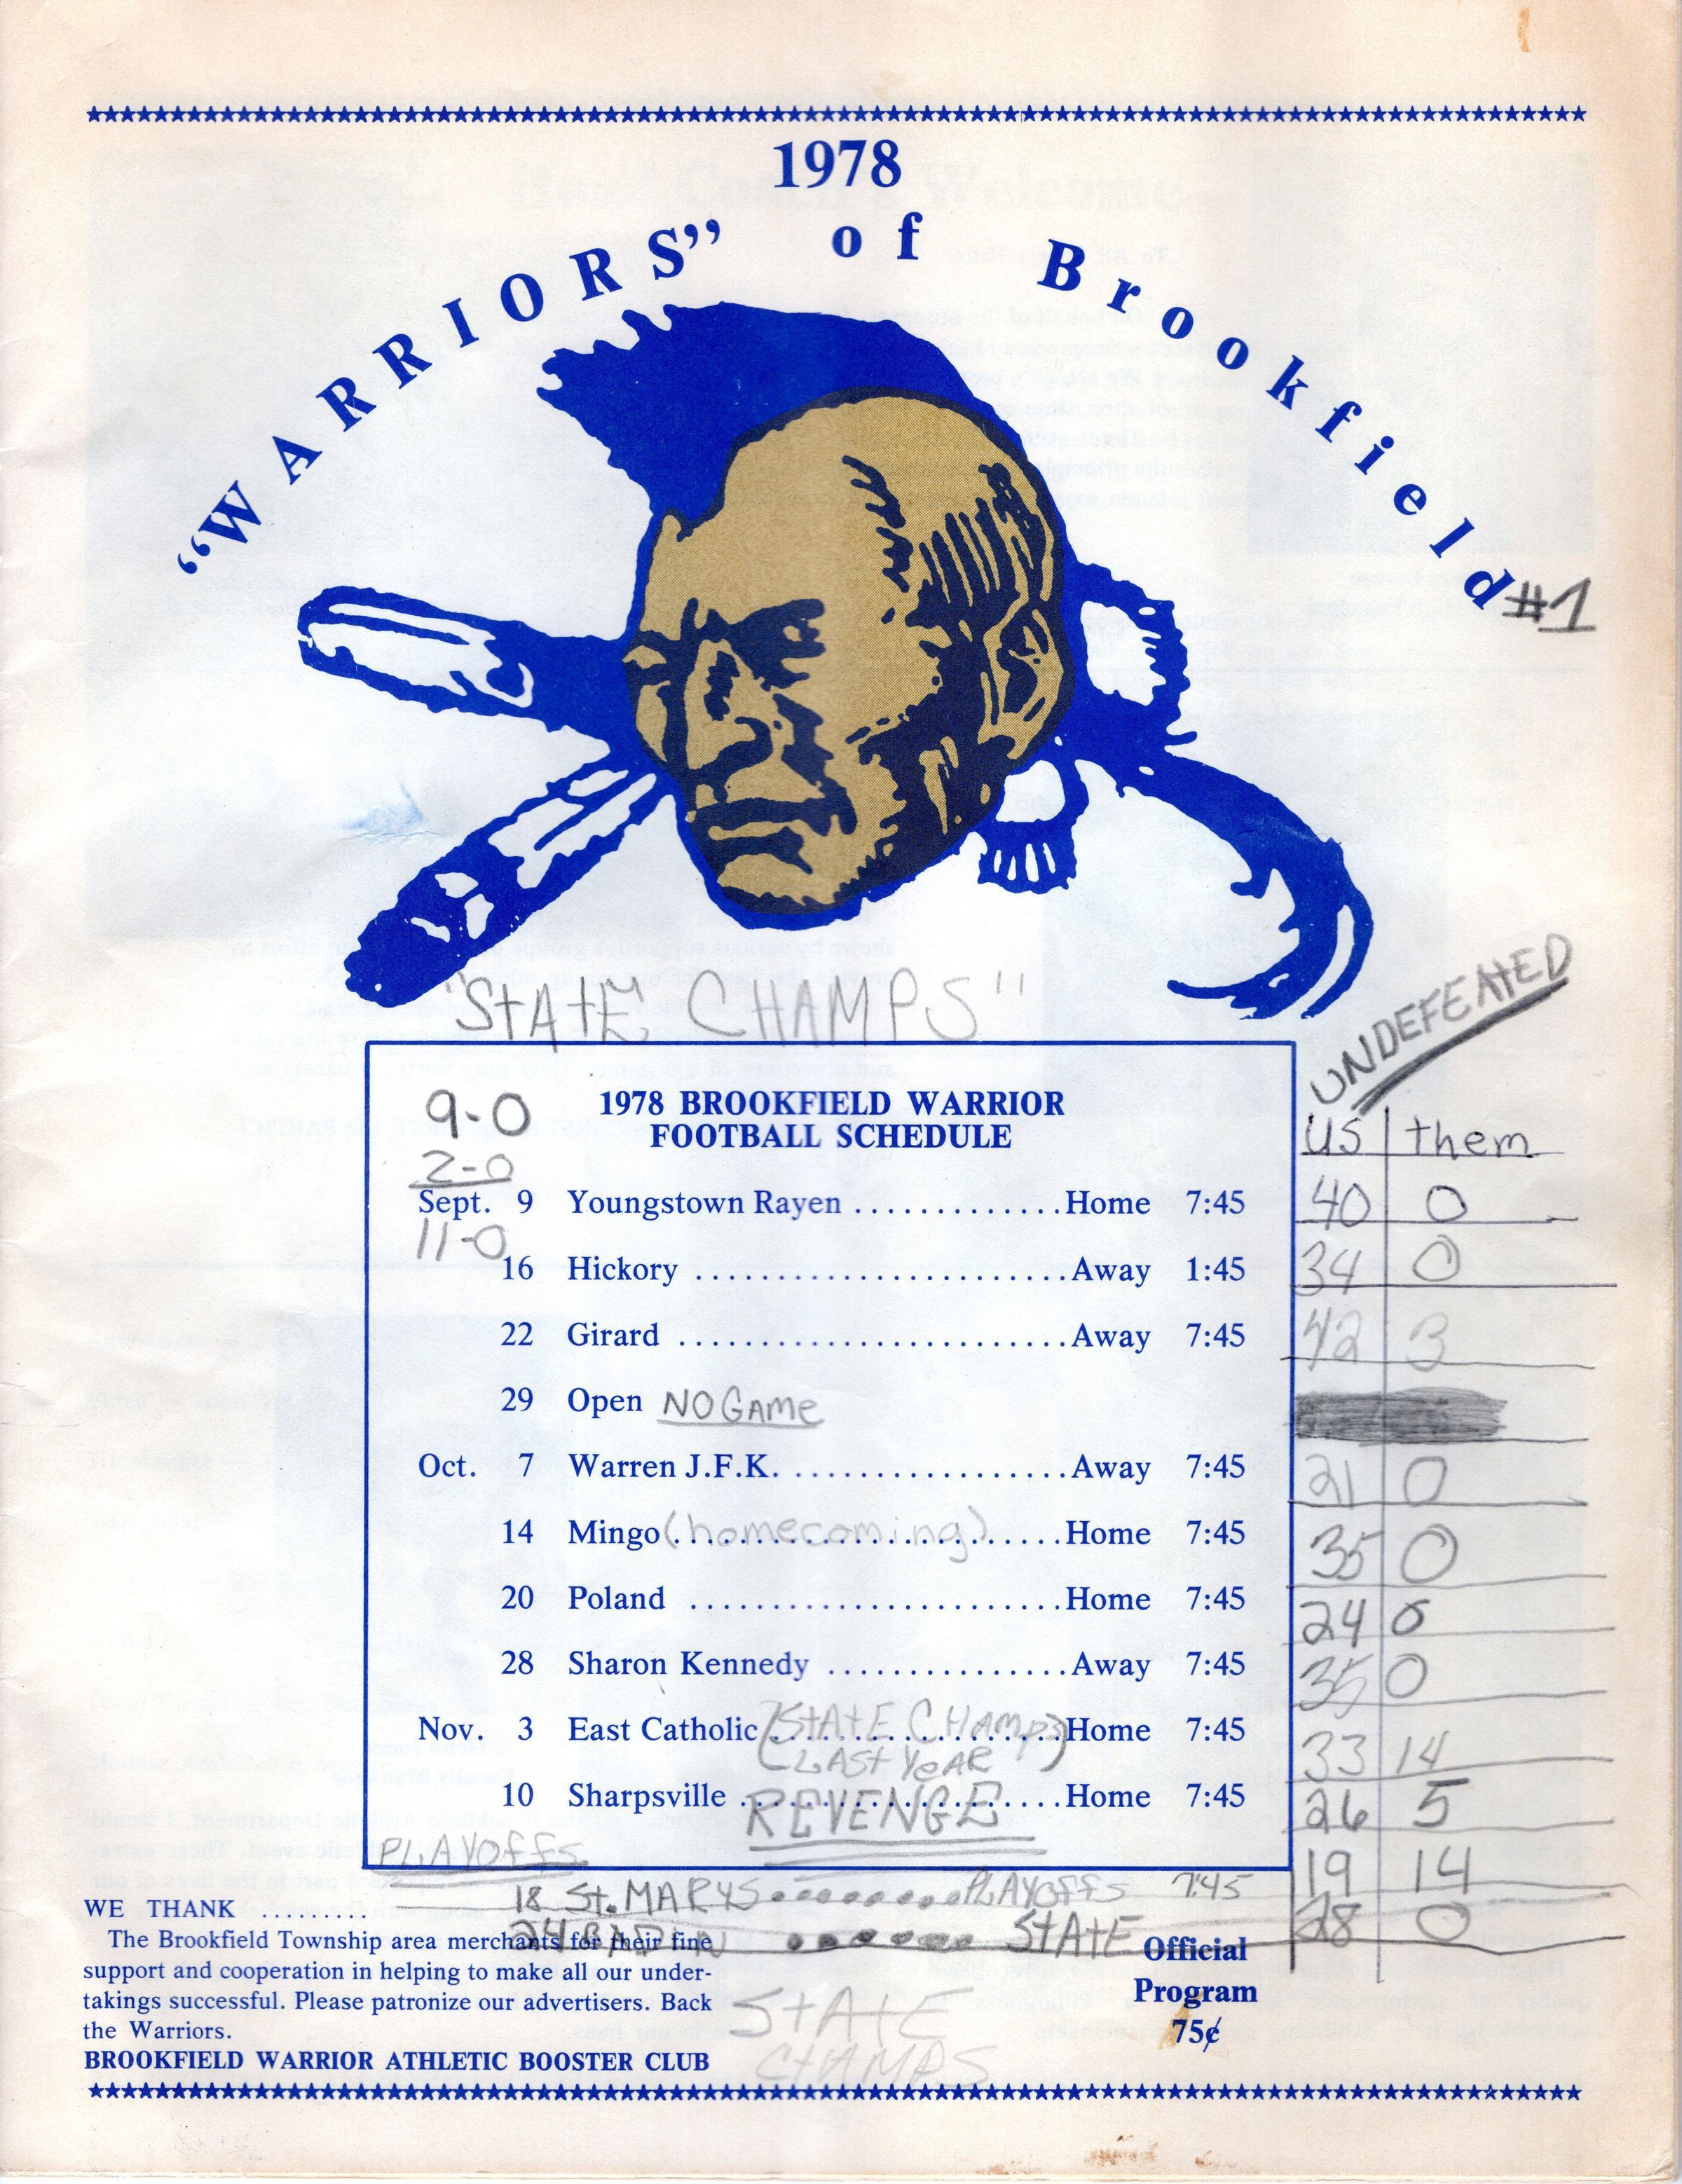 1978
“WARRIORS” of Brookfield #1
"STATE CHAMPS"
UNDEFEATED
9-0
2-0
11-0
1978 BROOKFIELD WARRIOR
FOOTBALL SCHEDULE
US them
Sept. 9 Youngstown Rayen .............Home 7:45 40 0
16 Hickory ..........................Away 1:45 34 0
22 Girard ...........................Away 7:45 42 3
29 Open NO GAME
Oct. 7 Warren J.F.K. ....................Away 7:45 21 0
14 Mingo (homecoming) ......................Home 7:45 35 0
20 Poland ........................Home 7:45 24 0
28 Sharon Kennedy ................Away 7:45 35 0
Nov. 3 East Catholic (STATE CHAMPS ....................Home 7:45 33 14
LAST YEAR)
10 Sharpsville REVENGE .....................Home 7:45 26 5
PLAYOFFS
18 St. MARYS ........... PLAYOFFS 7:45 19 14
24 BADIN ........ STATE 28 0
WE THANK .........
The Brookfield Township area merchants for their fine
support and cooperation in helping to make all our under-
takings successful. Please patronize our advertisers. Back
the Warriors.
BROOKFIELD WARRIOR ATHLETIC BOOSTER CLUB
STATE
CHAMPS
Official
Program
75¢